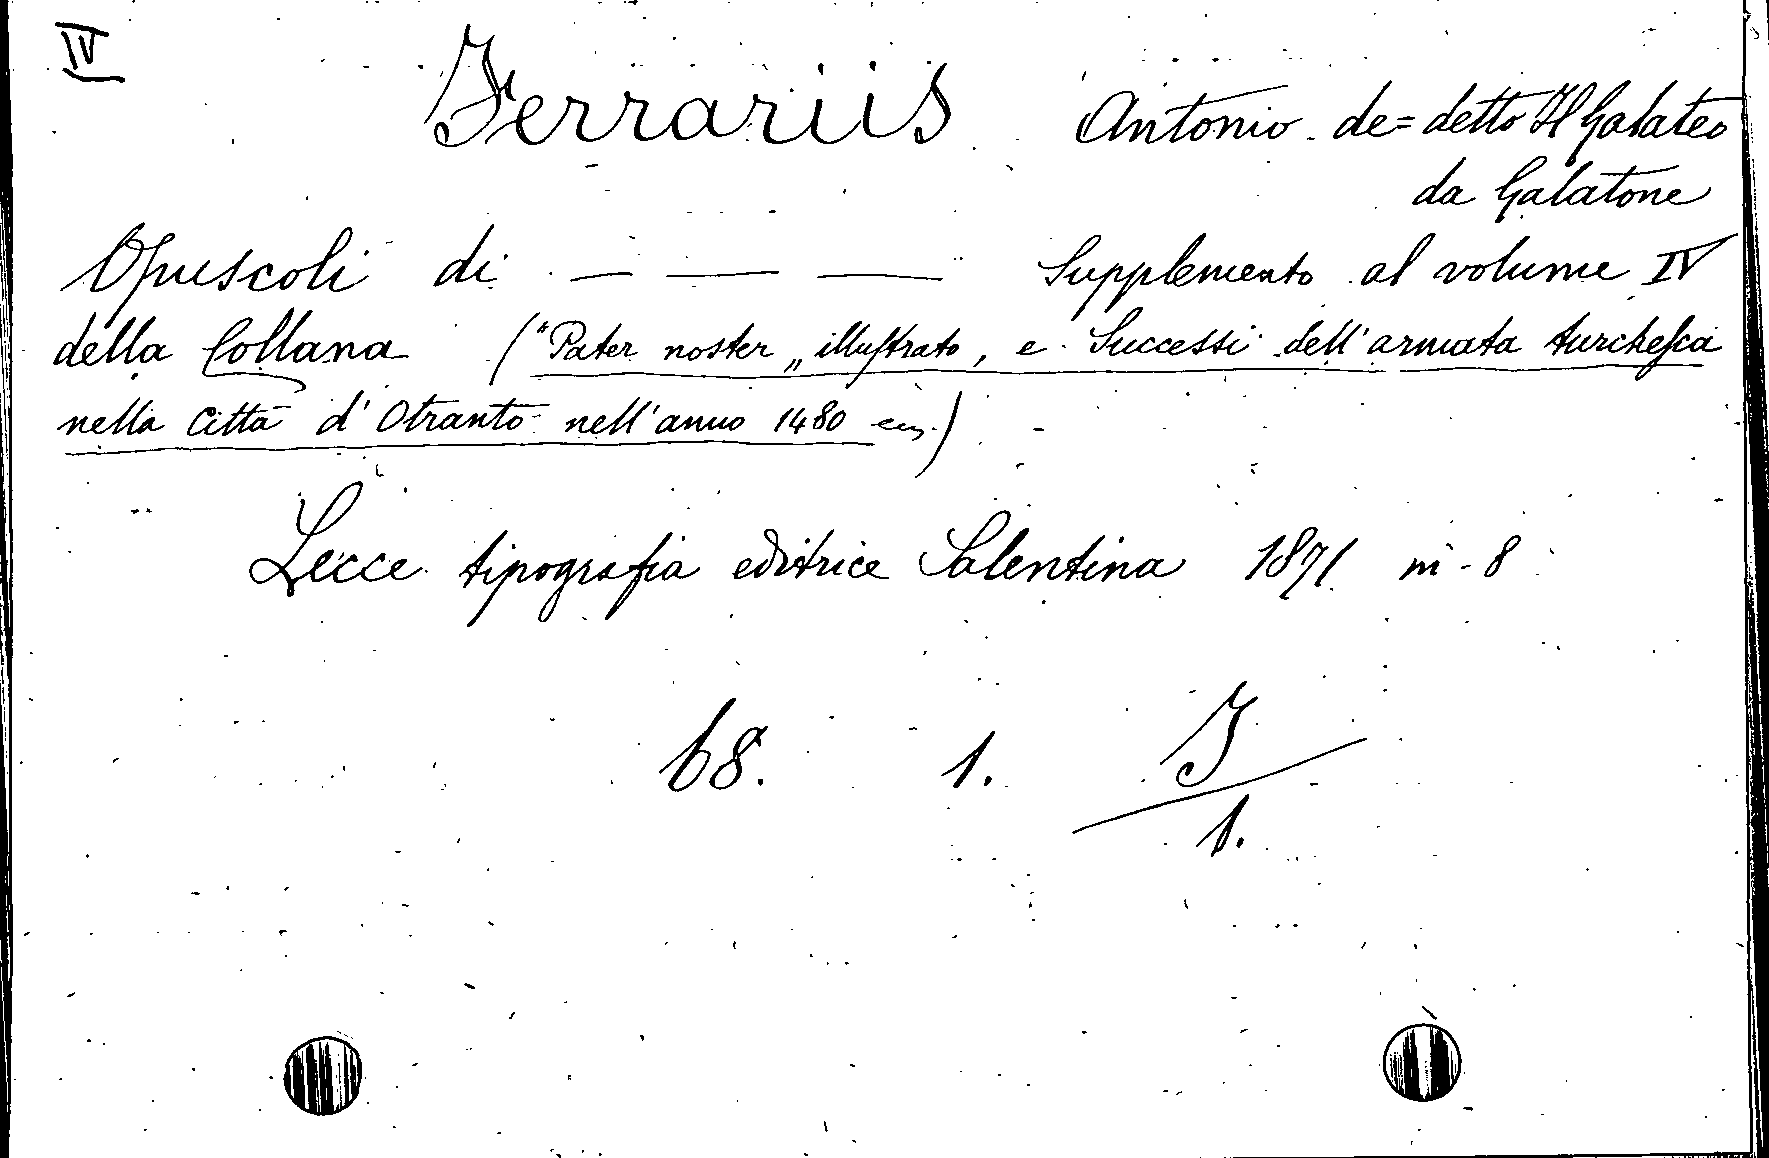 IV
Ferrariis Antonio de= detto Il Galateo
da Galatone
Opuscoli di — — — Supplemento al volume IV
della Collana ("Pater noster„ illustrato, e Successi dell'armata turchesca
nella Città d'Otranto nell'anno 1480 )
Lecce tipografia editrice Salentina 1871 in-8
68. 1. I
1.